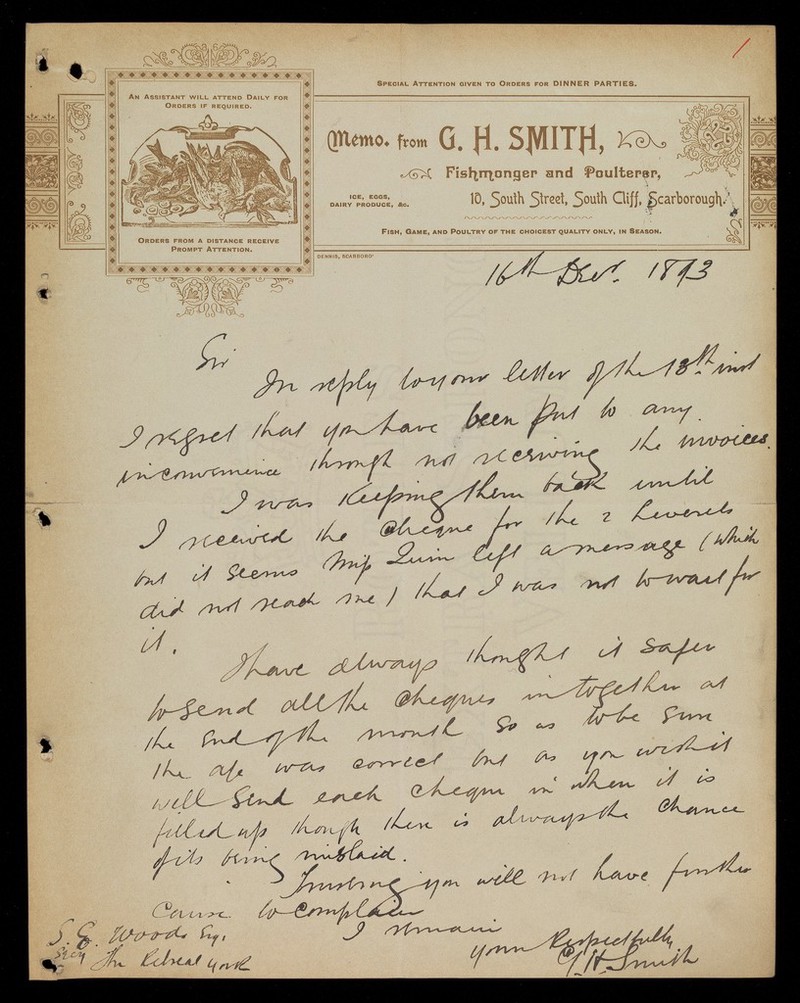 AN ASSISTANT WILL ATTEND DAILY FOR
ORDERS IF REQUIRED.
ORDERS FROM A DISTANCE RECEIVE
PROMPT ATTENTION.
SPECIAL ATTENTION GIVEN TO ORDERS FOR DINNER PARTIES.
Memo. from G. H. SMITH,
Fishmonger and Poulterer,
ICE, EGGS,
DAIRY PRODUCE, &c.
10, South Street, South Cliff, Scarborough.
FISH, GAME, AND POULTRY OF THE CHOICEST QUALITY ONLY, IN SEASON.
DENNIS, SCARBORO'
16th Decr. 1893
Sir
In reply to your letter of the 13th inst
I regret that you have been put to any
inconvenience through not receiving the invoices.
I was keeping them back until
I received the cheque for the 2 Leverets
but it seems Miss Quin left a message (which
did not reach me) that I was not to wait for
it.
I have always thought it safer
to send all the cheques in together at
the end of the month so as to be sure
the a/c was correct but as you wish it
will send each cheque in when it is
filled up though there is always the chance
of its being mislaid.
Trusting you will not have further
cause to complain
I remain
yours Respectfully
G. H. Smith
S. E. Woods Esq.
Secy
The Retreat York